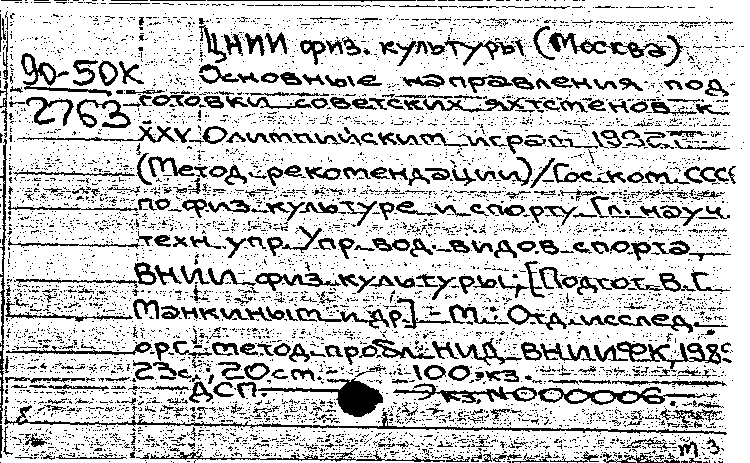 ЦНИИ физ. культуры (Москва)
90-50К Основные направления под
2763 готовки советских яхтсменов к
XXV Олимпийским играм 1992 г
(Метод. рекомендации)/Гос.ком. СССР
по физ. культуре и спорту. Гл. науч.
техн. упр. Упр. вод. видов спорта,
ВНИИ физ. культуры; [Подгот. В.Г.
Манкиным и др.] - М.: Отд. исслед.
орг.-метод. пробл. НИД ВНИИФК, 1989
23с.; 20см. - 100 экз.
ДСП. Экз. N000006.
м 3